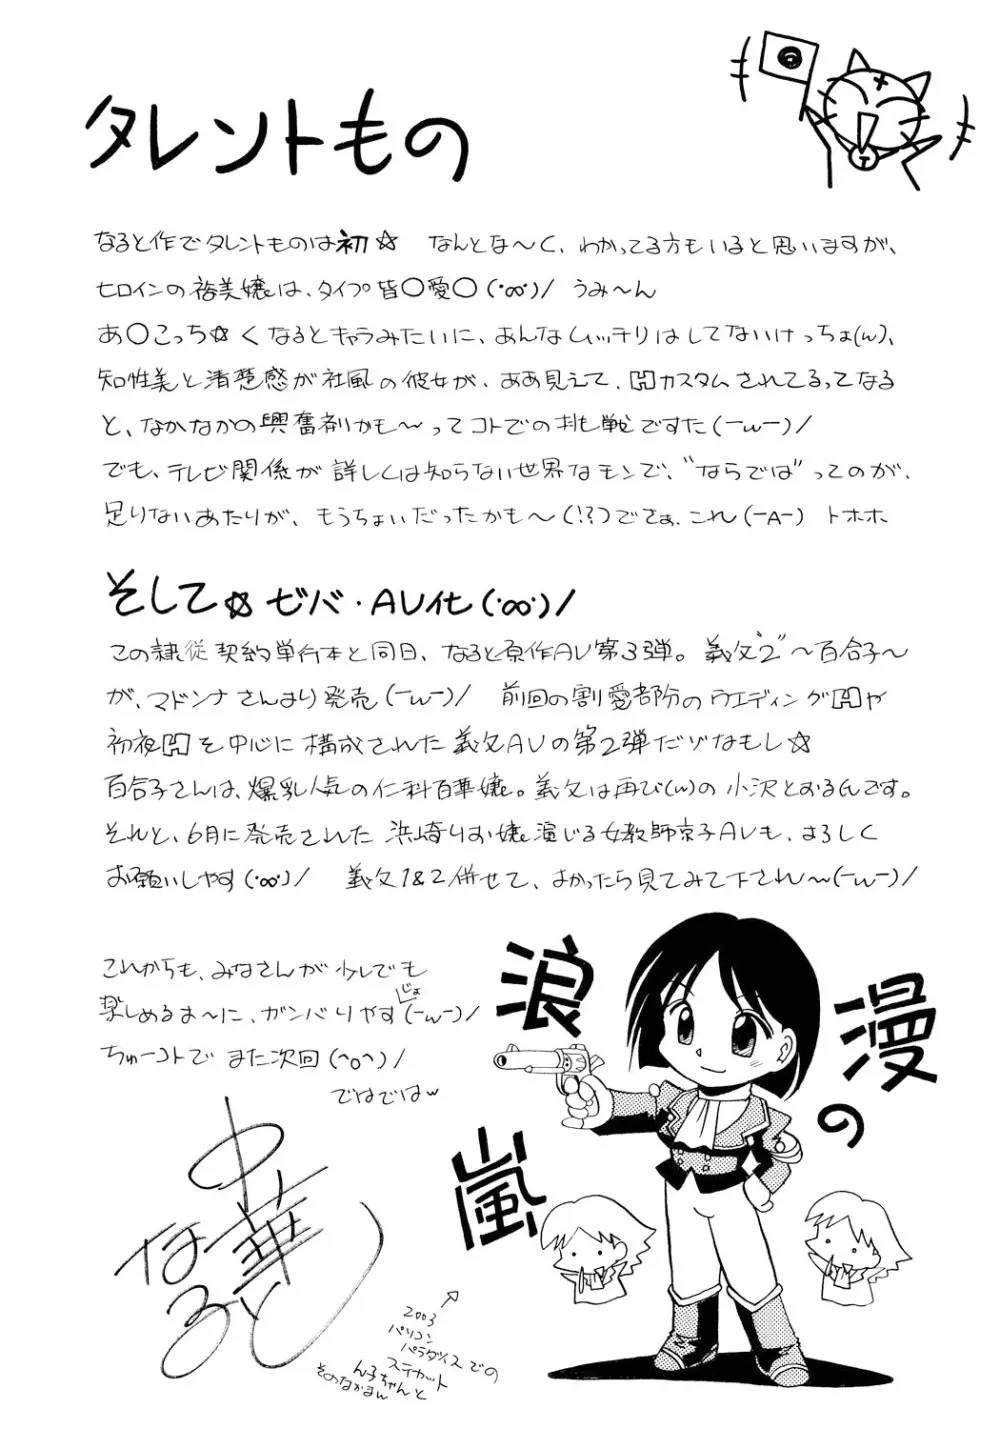 タレントもの
なると作でタレントものは初☆　なんとな～く、わかってる方もいると思いますが、
ヒロインの裕美嬢は、タイプ皆〇愛〇(・∞・)/　うみ～ん
あ〇こっち☆くなるとキャラみたいに、あんなムッチリはしてないけっちょ(w)、
知性美と清楚感が社風の彼女が、ああ見えて、Hカスタムされてるってなる
と、なかなかの興奮剤かも～ってコトでの挑戦ですた(ーwー)/
でも、テレビ関係が詳しくは知らない世界なモンで、“ならでは”ってのが、
足りないあたりが、もうちょいだったかも～(!?)でさぁ、これ(ーAー)　トホホ
そして☆ゼバ・AV化(・∞・)/
この隷従契約単行本と同日、なると原作AV第3弾。義父“2”～百合子～
が、マドンナさんより発売(ーwー)/　前回の割愛部分のウエディングHや
初夜Hを中心に構成された義父AVの第2弾だゾなもし☆
百合子さんは、爆乳人気の仁科百華嬢。義父は再び(w)の小沢とおるんです。
それと、6月に発売された浜崎りお嬢演じる女教師京子AVも、よろしく
お願いしやす(・∞・)/　義父1&2併せて、よかったら見てみて下され～(ーwー)/
これからも、みなさんが少しでも
楽しめるよ～に、ガンバりやす(ーwー)/
じょ
ちゅーコトでまた次回(^o^)/
ではではw
中華
なると
浪
漫
の
嵐
2003
パソコン
パラダイスでの
ステカット
ん子ちゃんと
そのなかまん
T